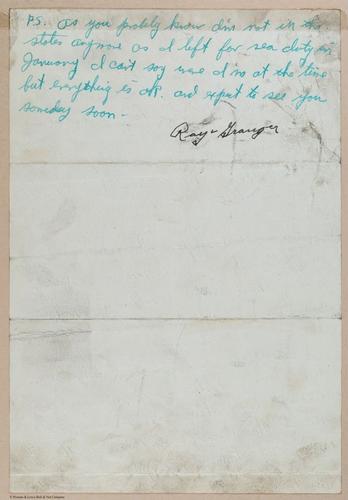 P.S. as you probely know I'm not in the
states anymore as I left for sea duty in
January I can't say were I'm at the time
but everything is ok. and expect to see you
someday soon -
Ray Granger